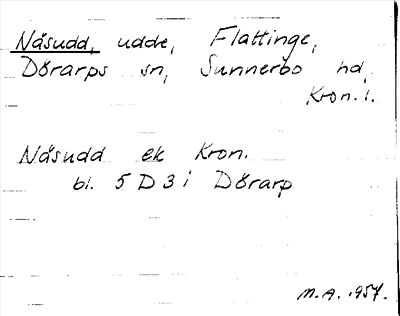 Näsudd, udde, Flattinge,
Dörarps sn, Sunnerbo hd,
Kron. l.
Näsudd ek Kron.
bl. 5 D 3 i Dörarp
M.A. 1957.